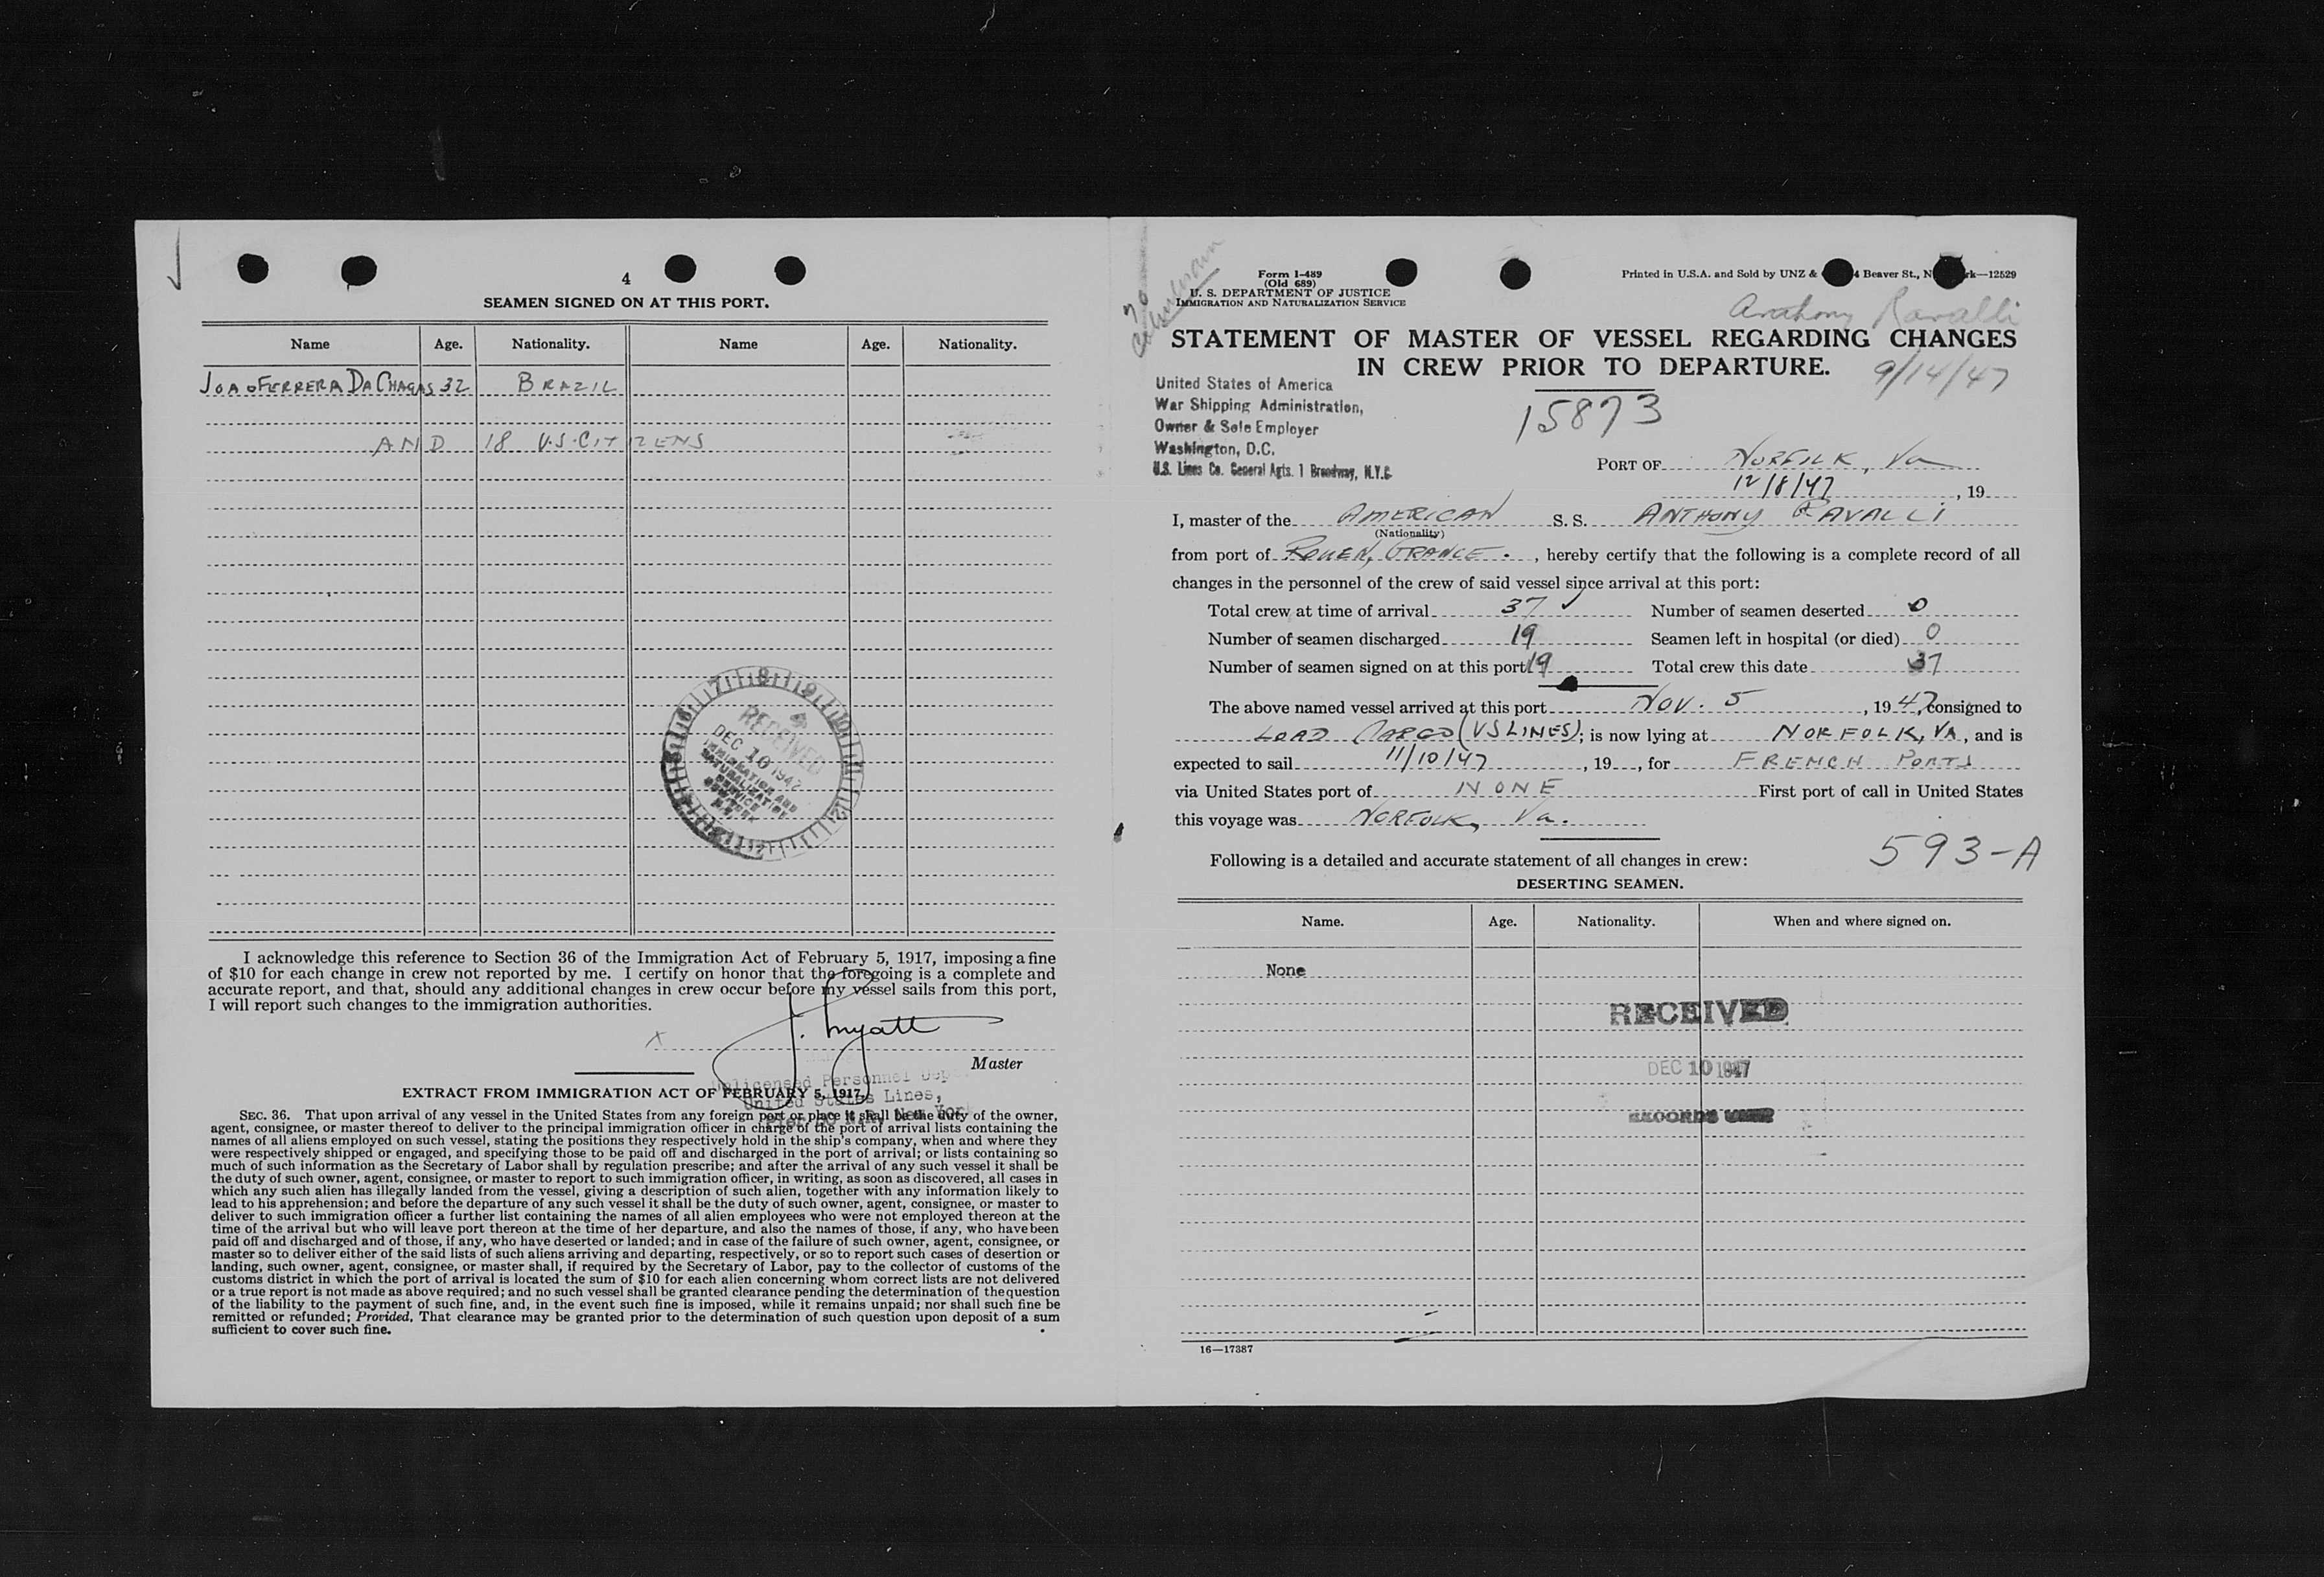 4
SEAMEN SIGNED ON AT THIS PORT.
Name Age. Nationality. Name Age. Nationality.
JOAO FERRERA DA CHAGAS 32 BRAZIL
AND 18 U.S. CITIZENS
RECEIVED
DEC 10 1947
IMMIGRATION AND
NATURALIZATION
SERVICE
I acknowledge this reference to Section 36 of the Immigration Act of February 5, 1917, imposing a fine
of $10 for each change in crew not reported by me. I certify on honor that the foregoing is a complete and
accurate report, and that, should any additional changes in crew occur before my vessel sails from this port,
I will report such changes to the immigration authorities.
x
Master
Unlicensed Personnel Dep
United States Lines,
EXTRACT FROM IMMIGRATION ACT OF FEBRUARY 5, 1917.
SEC. 36. That upon arrival of any vessel in the United States from any foreign port or place it shall be the duty of the owner,
agent, consignee, or master thereof to deliver to the principal immigration officer in charge of the port of arrival lists containing the
names of all aliens employed on such vessel, stating the positions they respectively hold in the ship's company, when and where they
were respectively shipped or engaged, and specifying those to be paid off and discharged in the port of arrival; or lists containing so
much of such information as the Secretary of Labor shall by regulation prescribe; and after the arrival of any such vessel it shall be
the duty of such owner, agent, consignee, or master to report to such immigration officer, in writing, as soon as discovered, all cases in
which any such alien has illegally landed from the vessel, giving a description of such alien, together with any information likely to
lead to his apprehension; and before the departure of any such vessel it shall be the duty of such owner, agent, consignee, or master to
deliver to such immigration officer a further list containing the names of all alien employees who were not employed thereon at the
time of the arrival but who will leave port thereon at the time of her departure, and also the names of those, if any, who have been
paid off and discharged and of those, if any, who have deserted or landed; and in case of the failure of such owner, agent, consignee, or
master so to deliver either of the said lists of such aliens arriving and departing, respectively, or so to report such cases of desertion or
landing, such owner, agent, consignee, or master shall, if required by the Secretary of Labor, pay to the collector of customs of the
customs district in which the port of arrival is located the sum of $10 for each alien concerning whom correct lists are not delivered
or a true report is not made as above required; and no such vessel shall be granted clearance pending the determination of the question
of the liability to the payment of such fine, and, in the event such fine is imposed, while it remains unpaid; nor shall such fine be
remitted or refunded; Provided, That clearance may be granted prior to the determination of such question upon deposit of a sum
sufficient to cover such fine.
Form I-489
(Old 689)
U. S. DEPARTMENT OF JUSTICE
IMMIGRATION AND NATURALIZATION SERVICE
Printed in U.S.A. and Sold by UNZ & 4 Beaver St., N rk—12529
Anthony Ravalli
STATEMENT OF MASTER OF VESSEL REGARDING CHANGES
IN CREW PRIOR TO DEPARTURE.
9/14/47
United States of America
War Shipping Administration,
Owner & Sole Employer
Washington, D.C.
U.S. Lines Co. General Agts. 1 Broadway, N.Y.C
15873
PORT OF NORFOLK, Va
12/8/47, 19
I, master of the AMERICAN S. S. ANTHONY RAVALLI
(Nationality)
from port of ROUEN, FRANCE. , hereby certify that the following is a complete record of all
changes in the personnel of the crew of said vessel since arrival at this port:
Total crew at time of arrival 37 ✓ Number of seamen deserted 0
Number of seamen discharged 19 Seamen left in hospital (or died) 0
Number of seamen signed on at this port 19 Total crew this date 37
The above named vessel arrived at this port NOV. 5, 1947, consigned to
LOAD CARGO (US LINES); is now lying at NORFOLK, VA, and is
expected to sail 11/10/47, 19 , for FRENCH PORTS
via United States port of NONE First port of call in United States
this voyage was NORFOLK, Va.
593-A
Following is a detailed and accurate statement of all changes in crew:
DESERTING SEAMEN.
Name. Age. Nationality. When and where signed on.
None
RECEIVED
DEC 10 1947
16—17387